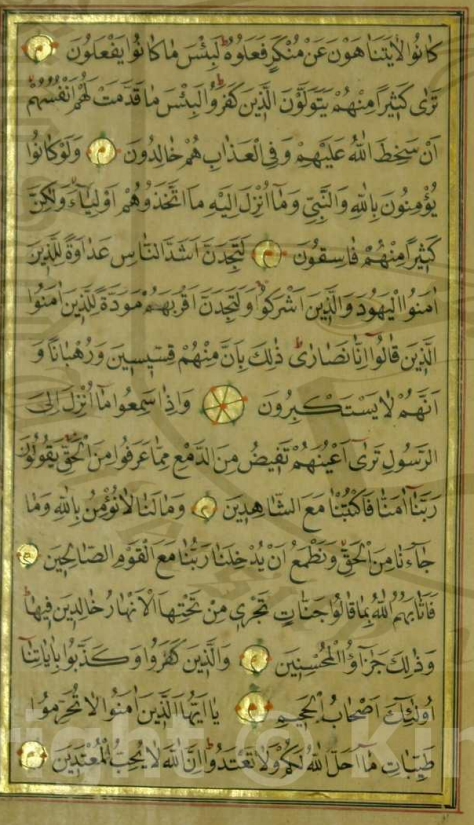 كَانُوا لَا يَتَنَاهَوْنَ عَنْ مُنْكَرٍ فَعَلُوهُ لَبِئْسَ مَا كَانُوا يَفْعَلُونَ
تَرٰى كَثِيرًا مِنْهُمْ يَتَوَلَّوْنَ الَّذِينَ كَفَرُوا لَبِئْسَ مَا قَدَّمَتْ لَهُمْ اَنْفُسُهُمْ
اَنْ سَخِطَ اللّٰهُ عَلَيْهِمْ وَفِى الْعَذَابِ هُمْ خَالِدُونَ وَلَوْ كَانُوا
يُؤْمِنُونَ بِاللّٰهِ وَالنَّبِىِّ وَمَا اُنْزِلَ اِلَيْهِ مَا اتَّخَذُوهُمْ اَوْلِيَاءَ وَلٰكِنَّ
كَثِيرًا مِنْهُمْ فَاسِقُونَ لَتَجِدَنَّ اَشَدَّ النَّاسِ عَدَاوَةً لِلَّذِينَ
اٰمَنُوا الْيَهُودَ وَالَّذِينَ اَشْرَكُوا وَلَتَجِدَنَّ اَقْرَبَهُمْ مَوَدَّةً لِلَّذِينَ اٰمَنُوا
الَّذِينَ قَالُوا اِنَّا نَصَارٰى ذٰلِكَ بِاَنَّ مِنْهُمْ قِسِّيسِينَ وَرُهْبَانًا وَ
اَنَّهُمْ لَا يَسْتَكْبِرُونَ وَاِذَا سَمِعُوا مَا اُنْزِلَ اِلَى
الرَّسُولِ تَرٰى اَعْيُنَهُمْ تَفِيضُ مِنَ الدَّمْعِ مِمَّا عَرَفُوا مِنَ الْحَقِّ يَقُولُونَ
رَبَّنَا اٰمَنَّا فَاكْتُبْنَا مَعَ الشَّاهِدِينَ وَمَا لَنَا لَا نُؤْمِنُ بِاللّٰهِ وَمَا
جَاءَنَا مِنَ الْحَقِّ وَنَطْمَعُ اَنْ يُدْخِلَنَا رَبُّنَا مَعَ الْقَوْمِ الصَّالِحِينَ
فَاَثَابَهُمُ اللّٰهُ بِمَا قَالُوا جَنَّاتٍ تَجْرِى مِنْ تَحْتِهَا الْاَنْهَارُ خَالِدِينَ فِيهَا
وَذٰلِكَ جَزَاؤُ الْمُحْسِنِينَ وَالَّذِينَ كَفَرُوا وَكَذَّبُوا بِاٰيَاتِنَا
اُولٰئِكَ اَصْحَابُ الْجَحِيمِ يَا اَيُّهَا الَّذِينَ اٰمَنُوا لَا تُحَرِّمُوا
طَيِّبَاتِ مَا اَحَلَّ اللّٰهُ لَكُمْ وَلَا تَعْتَدُوا اِنَّ اللّٰهَ لَا يُحِبُّ الْمُعْتَدِينَ